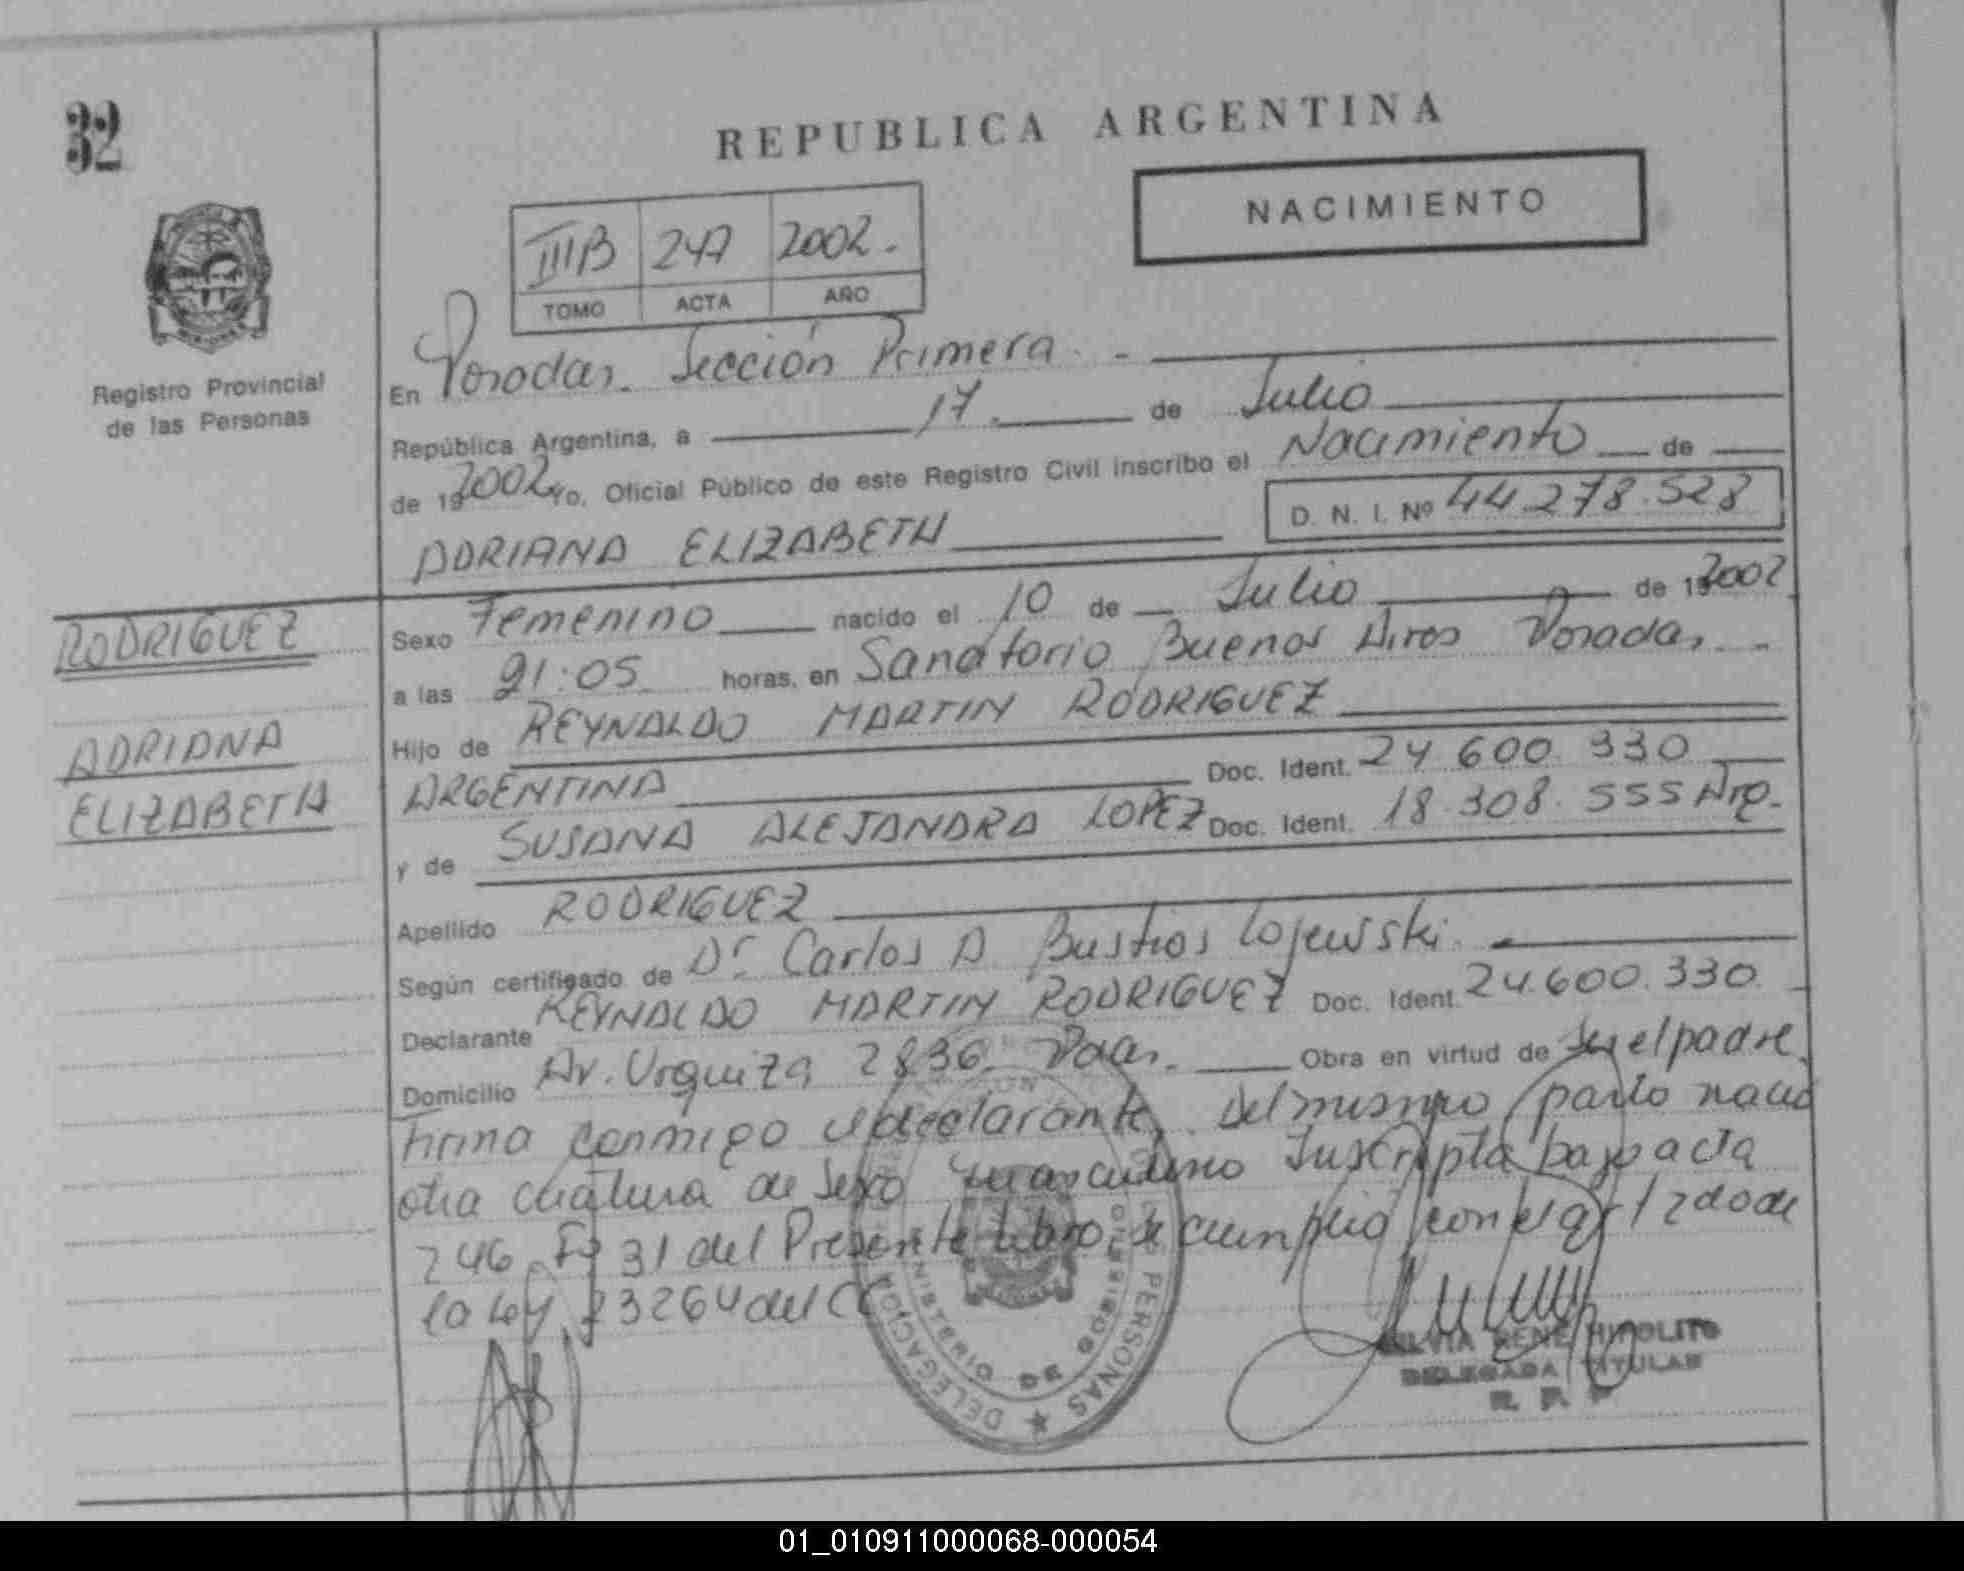 32
REPUBLICA ARGENTINA
NACIMIENTO
IIIB 247 2002.
TOMO ACTA AÑO
Registro Provincial
de las Personas
En Posadas. Sección Primera. -
República Argentina, a 17. de Julio
de 19 2002 Yo, Oficial Público de este Registro Civil inscribo el Nacimiento de
D. N. I. Nº 44.278.528
ADRIANA ELIZABETH
RODRIGUEZ
ADRIANA
ELIZABETH
Sexo Femenino nacido el 10 de Julio de 19 2002
a las 21:05 horas, en Sanatorio Buenos Aires Posadas. -
Hijo de REYNALDO MARTIN RODRIGUEZ
ARGENTINA Doc. Ident. 24 600. 330
y de SUSANA ALEJANDRA LOPEZ Doc. Ident. 18.308. 555 Arg.
Apellido RODRIGUEZ
Según certificado de Dr. Carlos A Bustios Lojewski. -
Declarante REYNALDO MARTIN RODRIGUEZ Doc. Ident. 24.600.330
Domicilio Av. Urquiza 2836. Pdas. Obra en virtud de ser el padre.
Firma conmigo el declarante. Del mismo parto nació
otra criatura de sexo masculino Inscripta bajo acta
246 Fº 31 del Presente Libro, se cumplió con el art 12do de
la ley 23264 del CC
PERSONAS ★ DELEGACION
SILVIA RENE HIPOLITO
DELEGADA TITULAR
R. P. P
01_010911000068-000054